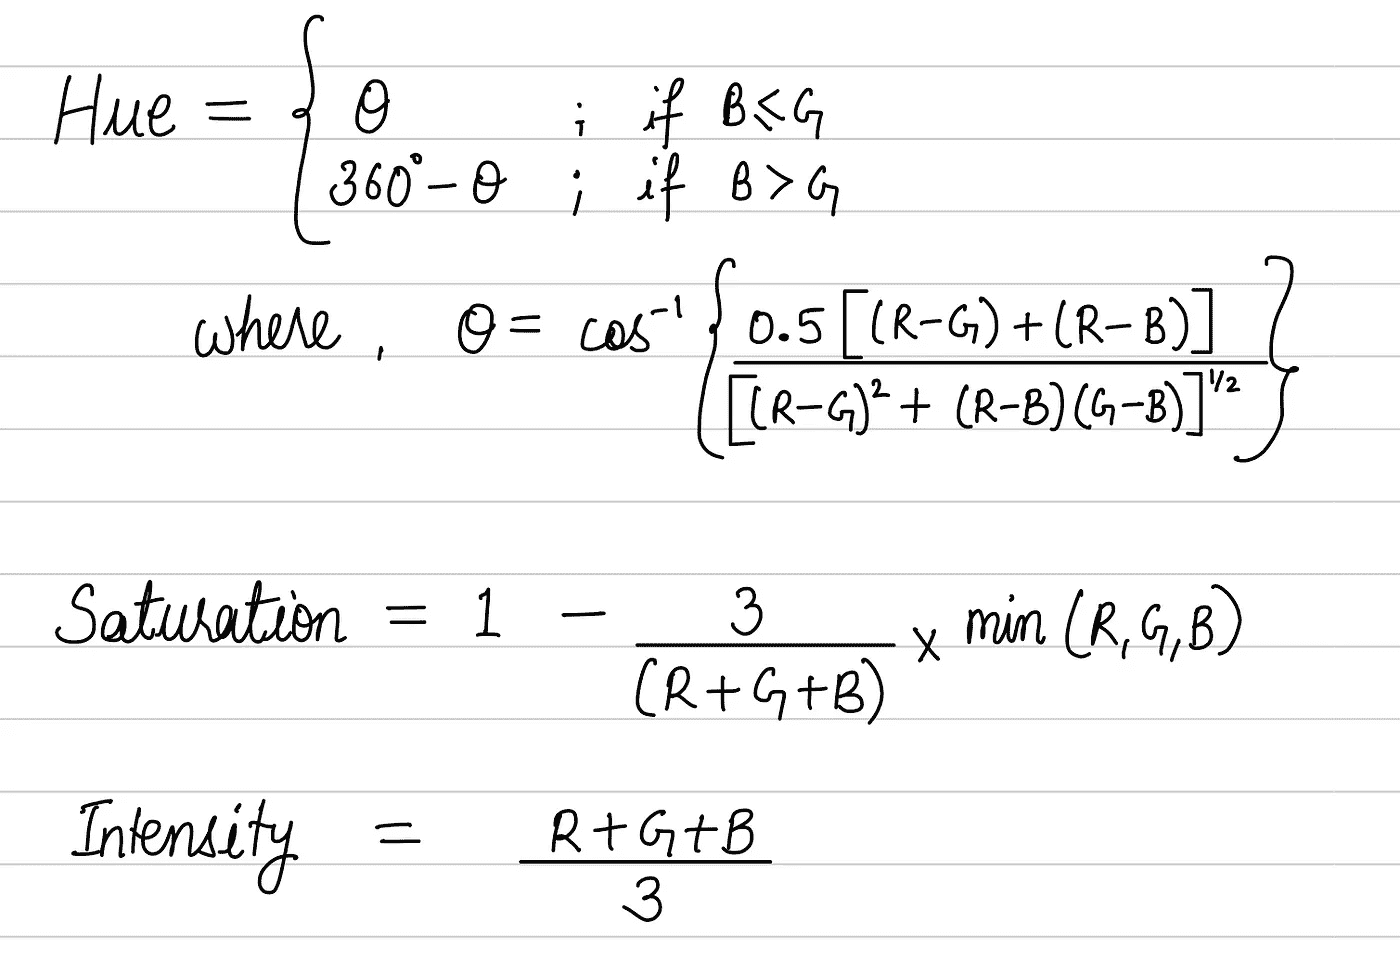 Hue = { θ ; if B ≤ G
360° − θ ; if B > G
where, θ = cos⁻¹ { 0.5 [(R−G) + (R−B)] / [(R−G)² + (R−B)(G−B)]^1/2 }
Saturation = 1 − 3 / (R+G+B) × min (R, G, B)
Intensity = R+G+B / 3